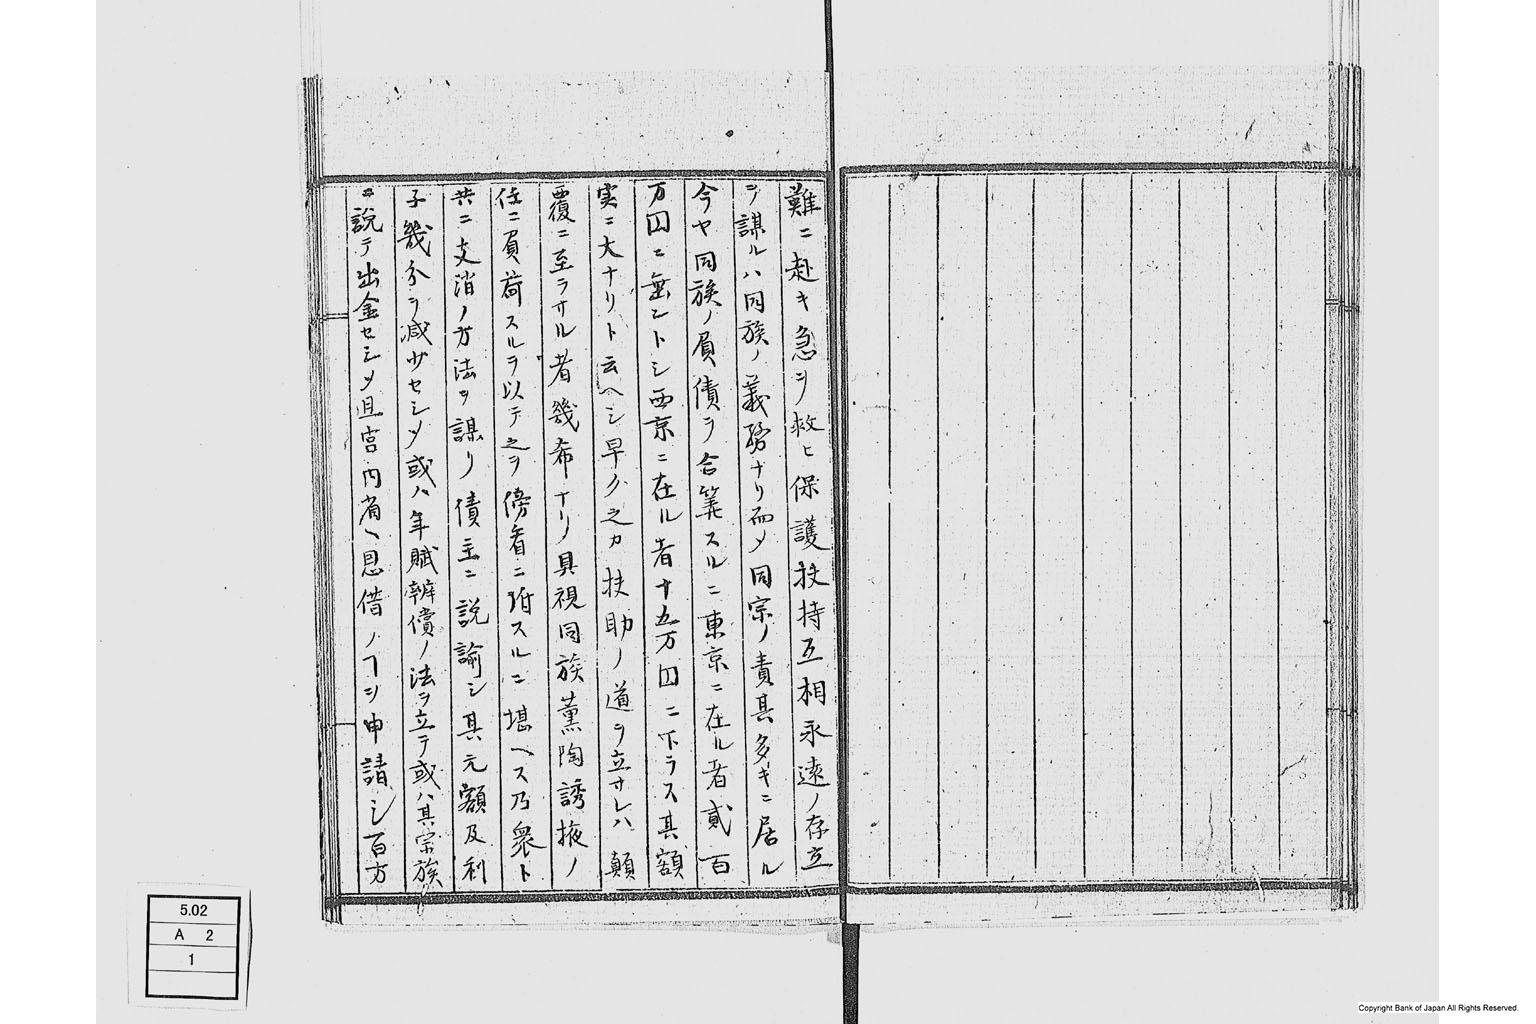 難ニ赴キ急ヲ救ヒ保護扶持互相永遠ノ存立
ヲ謀ルハ同族ノ義務ナリ而メ同宗ノ責其多キニ居ル
今ヤ同族ノ負債ヲ合筭スルニ東京ニ在ル者貳百
万囚ニ垂ントシ西京ニ在ル者十五万囚ニ下ラス其額
実ニ大ナリト云ヘシ早ク之カ扶助ノ道ヲ立サレハ顛
覆ニ至ラサル者幾希ナリノ具視同族薫陶誘掖ノ
任ニ負荷スルヲ以テ之ヲ傍看ニ附スルニ堪ヘス乃衆ト
共ニ支消ノ方法ヲ謀リ債主ニ説諭シ其元額及利
子幾分ヲ減少セシメ或ハ年賦辨償ノ法ヲ立テ或ハ其宗族
ニ説テ出金セシメ且宮内省ヘ恩借ノヿヲ申請シ百方
5.02
A 2
1
Copyright Bank of Japan All Rights Reserved.